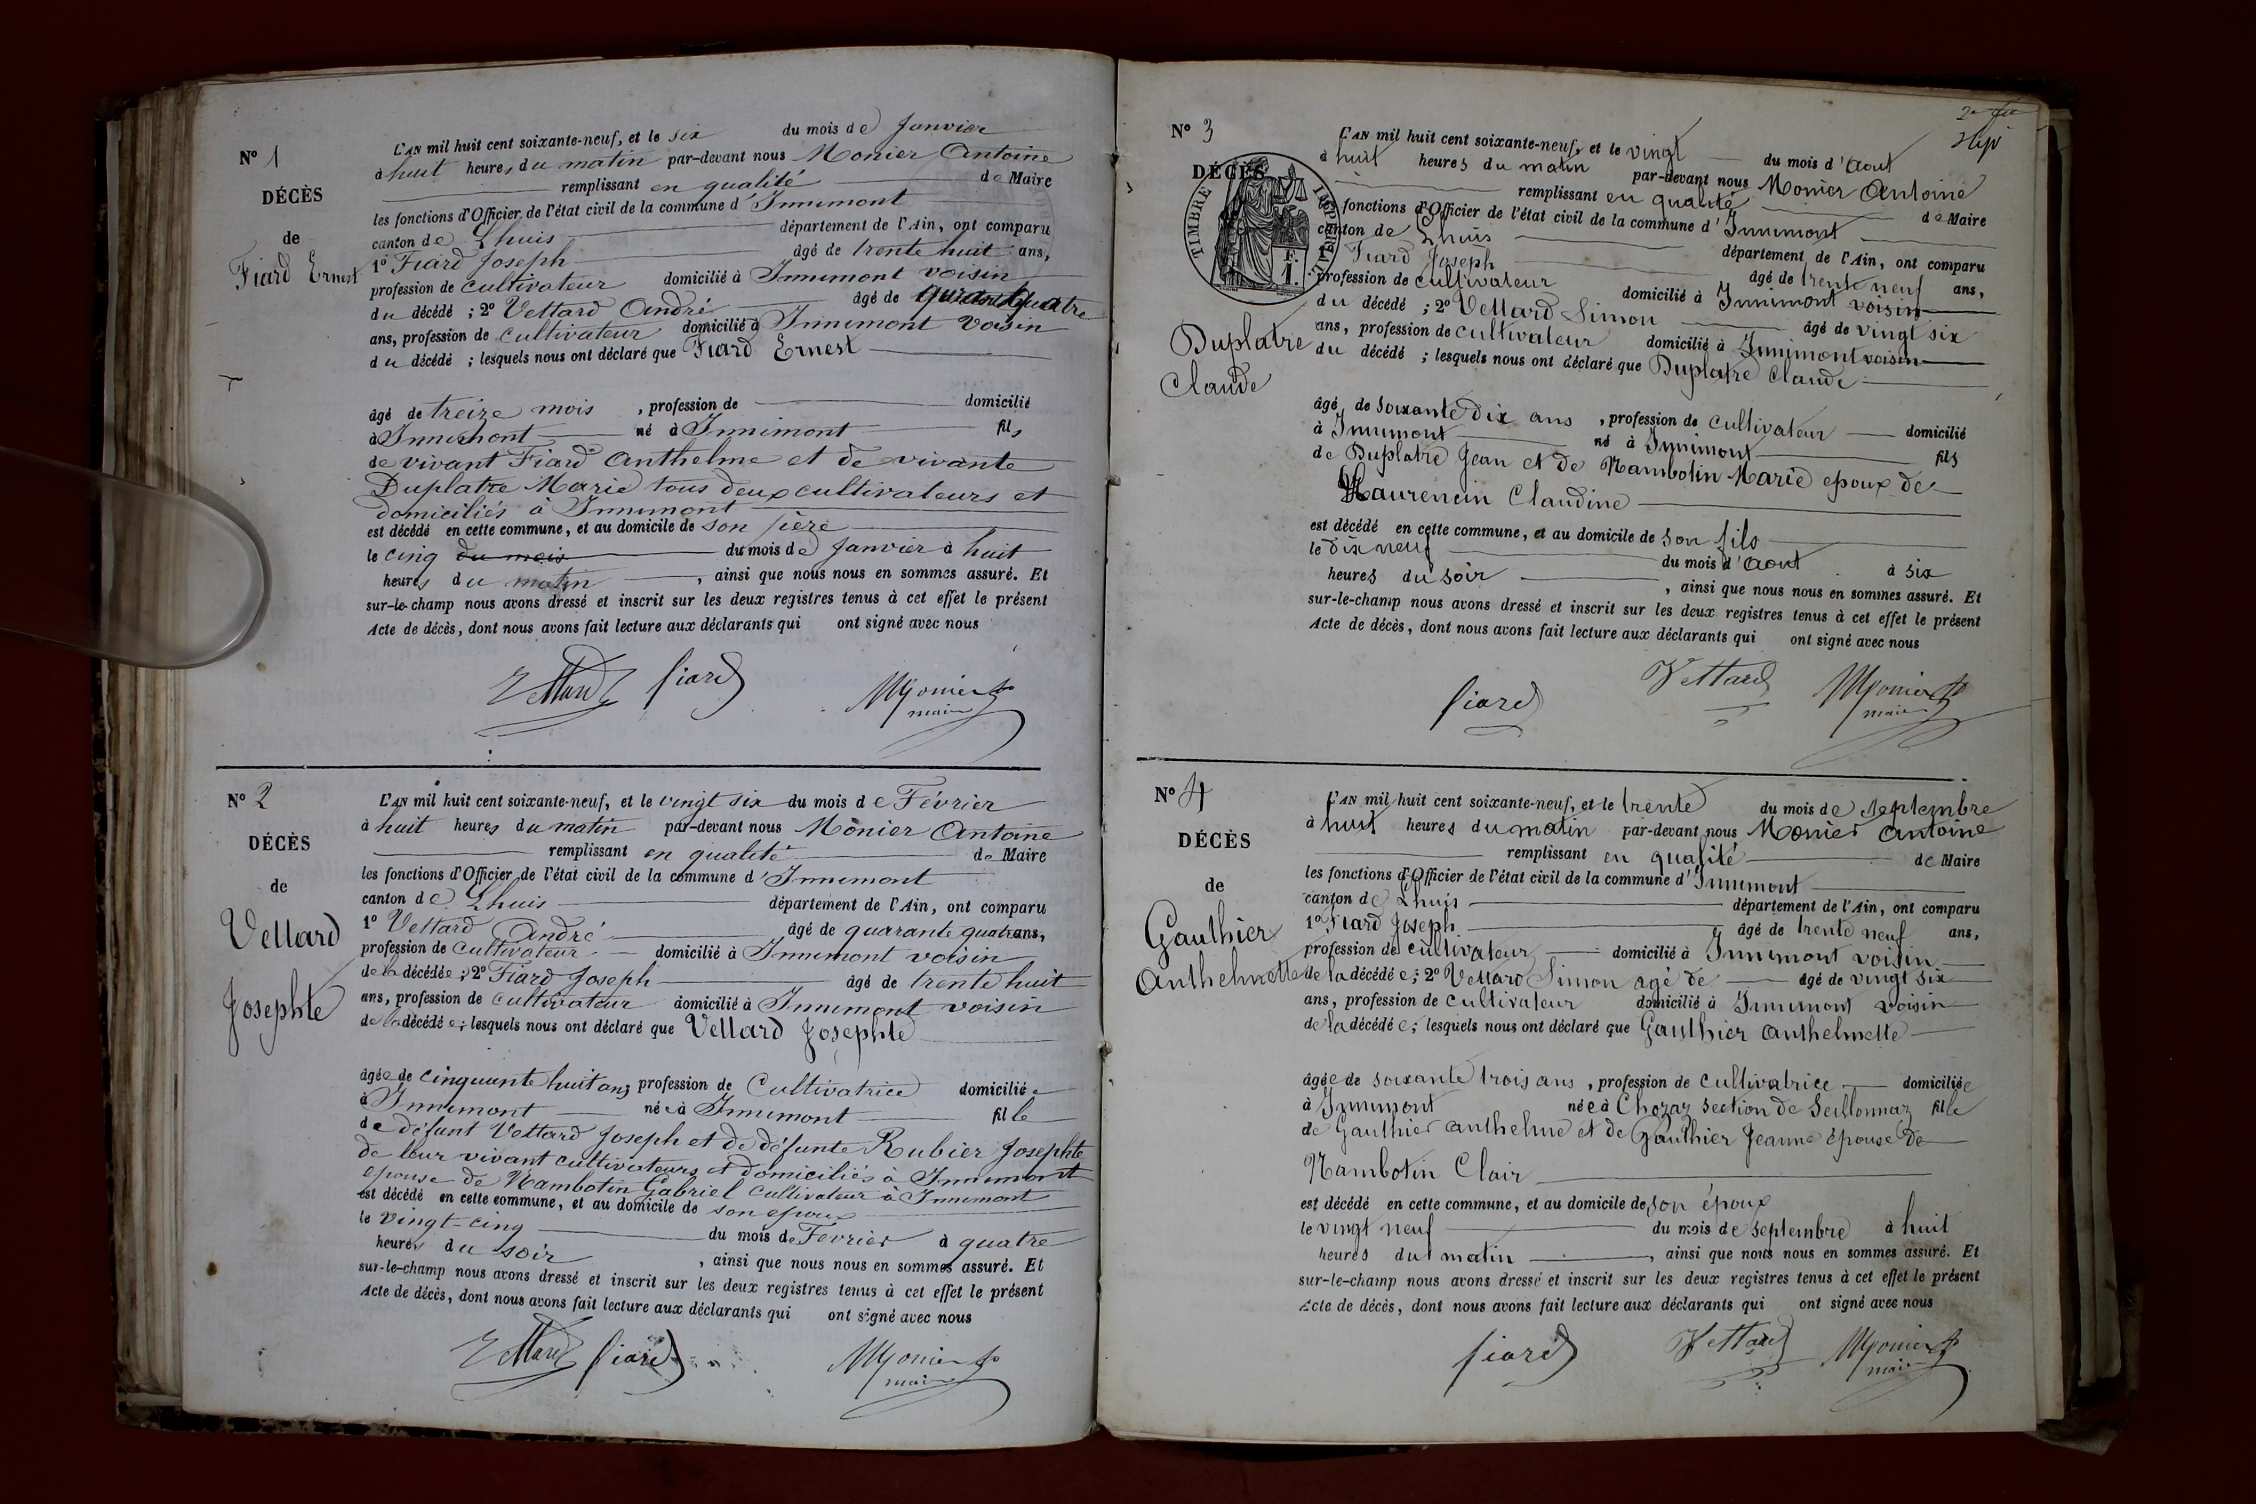 N° 1
DÉCÈS
de
Fiard Ernest
L'AN mil huit cent soixante-neuf, et le six du mois de Janvier
à huit heures du matin par-devant nous Monier Antoine
remplissant en qualité de Maire
les fonctions d'Officier de l'état civil de la commune d'Innimont
canton de Lhuis département de l'Ain, ont comparu
1° Fiard Joseph âgé de trente huit ans,
profession de cultivateur domicilié à Innimont voisin
du décédé ; 2° Vettard André âgé de quatre
ans, profession de cultivateur domicilié à Innimont voisin
du décédé ; lesquels nous ont déclaré que Fiard Ernest
âgé de treize mois , profession de domicilié
à Innimont né à Innimont fils
de vivant Fiard Anthelme et de vivante
Duplatre Marie tous deux cultivateurs et
domiciliés à Innimont
est décédé en cette commune, et au domicile de son père
le cinq du mois du mois de Janvier à huit
heures du matin , ainsi que nous nous en sommes assuré. Et
sur-le-champ nous avons dressé et inscrit sur les deux registres tenus à cet effet le présent
Acte de décès, dont nous avons fait lecture aux déclarants qui ont signé avec nous
Vettard fiard Monier
maire
N° 2
DÉCÈS
de
Vettard
Josephte
L'AN mil huit cent soixante-neuf, et le vingt six du mois de Février
à huit heures du matin par-devant nous Monier Antoine
remplissant en qualité de Maire
les fonctions d'Officier de l'état civil de la commune d'Innimont
canton de Lhuis département de l'Ain, ont comparu
1° Vettard André âgé de quarante quatre ans,
profession de cultivateur domicilié à Innimont voisin
de la décédée ; 2° Fiard Joseph âgé de trente huit
ans, profession de cultivateur domicilié à Innimont voisin
de la décédée ; lesquels nous ont déclaré que Vettard Josephte
âgée de cinquante huit ans profession de Cultivatrice domiciliée
à Innimont née à Innimont fille
de défunt Vettard Joseph et de défunte Rubier Josephte
de leur vivant cultivateurs et domiciliés à Innimont
epouse de Nambotin Gabriel cultivateur à Innimont
est décédé en cette commune, et au domicile de son epoux
le vingt-cinq du mois de Fevrier à quatre
heures du soir , ainsi que nous nous en sommes assuré. Et
sur-le-champ nous avons dressé et inscrit sur les deux registres tenus à cet effet le présent
Acte de décès, dont nous avons fait lecture aux déclarants qui ont signé avec nous
Vettard fiard Monier
maire
N° 3
DÉCÈS
TIMBRE IMPÉRIAL
1 F.
Duplatre
Claude
L'AN mil huit cent soixante-neuf, et le vingt du mois d'Aout
à huit heures du matin par-devant nous Monier Antoine
remplissant en qualité de Maire
fonctions d'Officier de l'état civil de la commune d'Innimont
canton de Lhuis département de l'Ain, ont comparu
Fiard Joseph âgé de trente neuf ans,
profession de cultivateur domicilié à Innimont voisin
du décédé ; 2° Vettard Simon âgé de vingt six
ans, profession de cultivateur domicilié à Innimont voisin
du décédé ; lesquels nous ont déclaré que Duplatre Claude
âgé de soixante dix ans , profession de cultivateur domicilié
à Innimont né à Innimont fils
de Duplatre Jean et de Nambotin Marie epoux de
Maurencin Claudine
est décédé en cette commune, et au domicile de son fils
le dix neuf du mois d'Aout à six
heures du soir , ainsi que nous nous en sommes assuré. Et
sur-le-champ nous avons dressé et inscrit sur les deux registres tenus à cet effet le présent
Acte de décès, dont nous avons fait lecture aux déclarants qui ont signé avec nous
fiard Vettard Monier
maire
N° 4
DÉCÈS
de
Gauthier
Anthelmette
L'AN mil huit cent soixante-neuf, et le trente du mois de septembre
à huit heures du matin par-devant nous Monier Antoine
remplissant en qualité de Maire
les fonctions d'Officier de l'état civil de la commune d'Innimont
canton de Lhuis département de l'Ain, ont comparu
1° Fiard Joseph âgé de trente neuf ans,
profession de cultivateur domicilié à Innimont voisin
de la décédée ; 2° Vettard Simon agé de âgé de vingt six
ans, profession de cultivateur domicilié à Innimont voisin
de la décédée ; lesquels nous ont déclaré que Gauthier Anthelmette
âgée de soixante trois ans , profession de cultivatrice domiciliée
à Innimont née à Chozaz section de Seillonnaz fille
de Gauthier anthelme et de Gauthier Jeanne épouse de
Nambotin Clair
est décédé en cette commune, et au domicile de son époux
le vingt neuf du mois de septembre à huit
heures du matin , ainsi que nous nous en sommes assuré. Et
sur-le-champ nous avons dressé et inscrit sur les deux registres tenus à cet effet le présent
Acte de décès, dont nous avons fait lecture aux déclarants qui ont signé avec nous
fiard Vettard Monier
maire